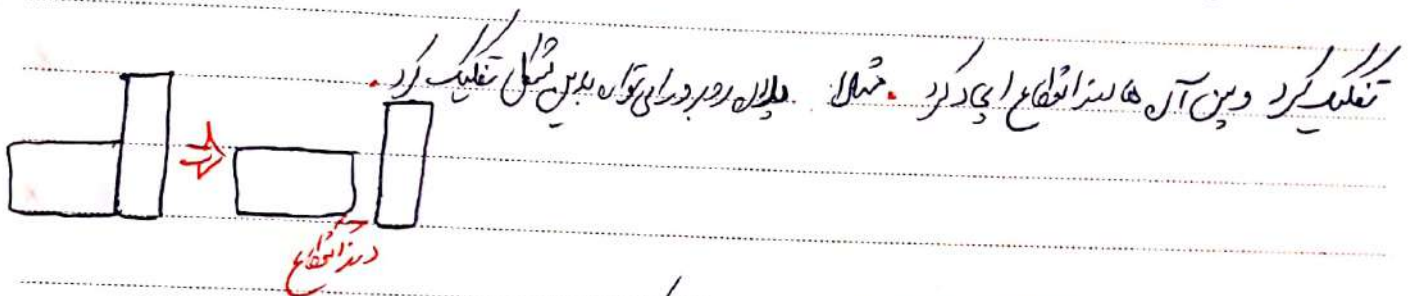 تفکیک کرد و بین آن ها درز انقطاع ایجاد کرد. مثلا پلان روبرو را می توان بدین شکل تفکیک کرد.
درز انقطاع